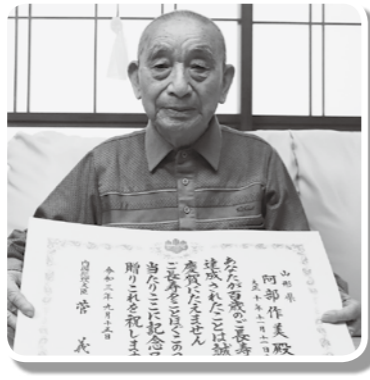 山形県
阿部作美殿
大正十年十一月十一日
あなたが百歳のご長寿
達成されたことは誠
慶賀にたえません
ご長寿をことほぐこのつ
当たりここに記念
贈りこれを祝しま
令和三年九月十五日
内閣総理大臣 菅 義